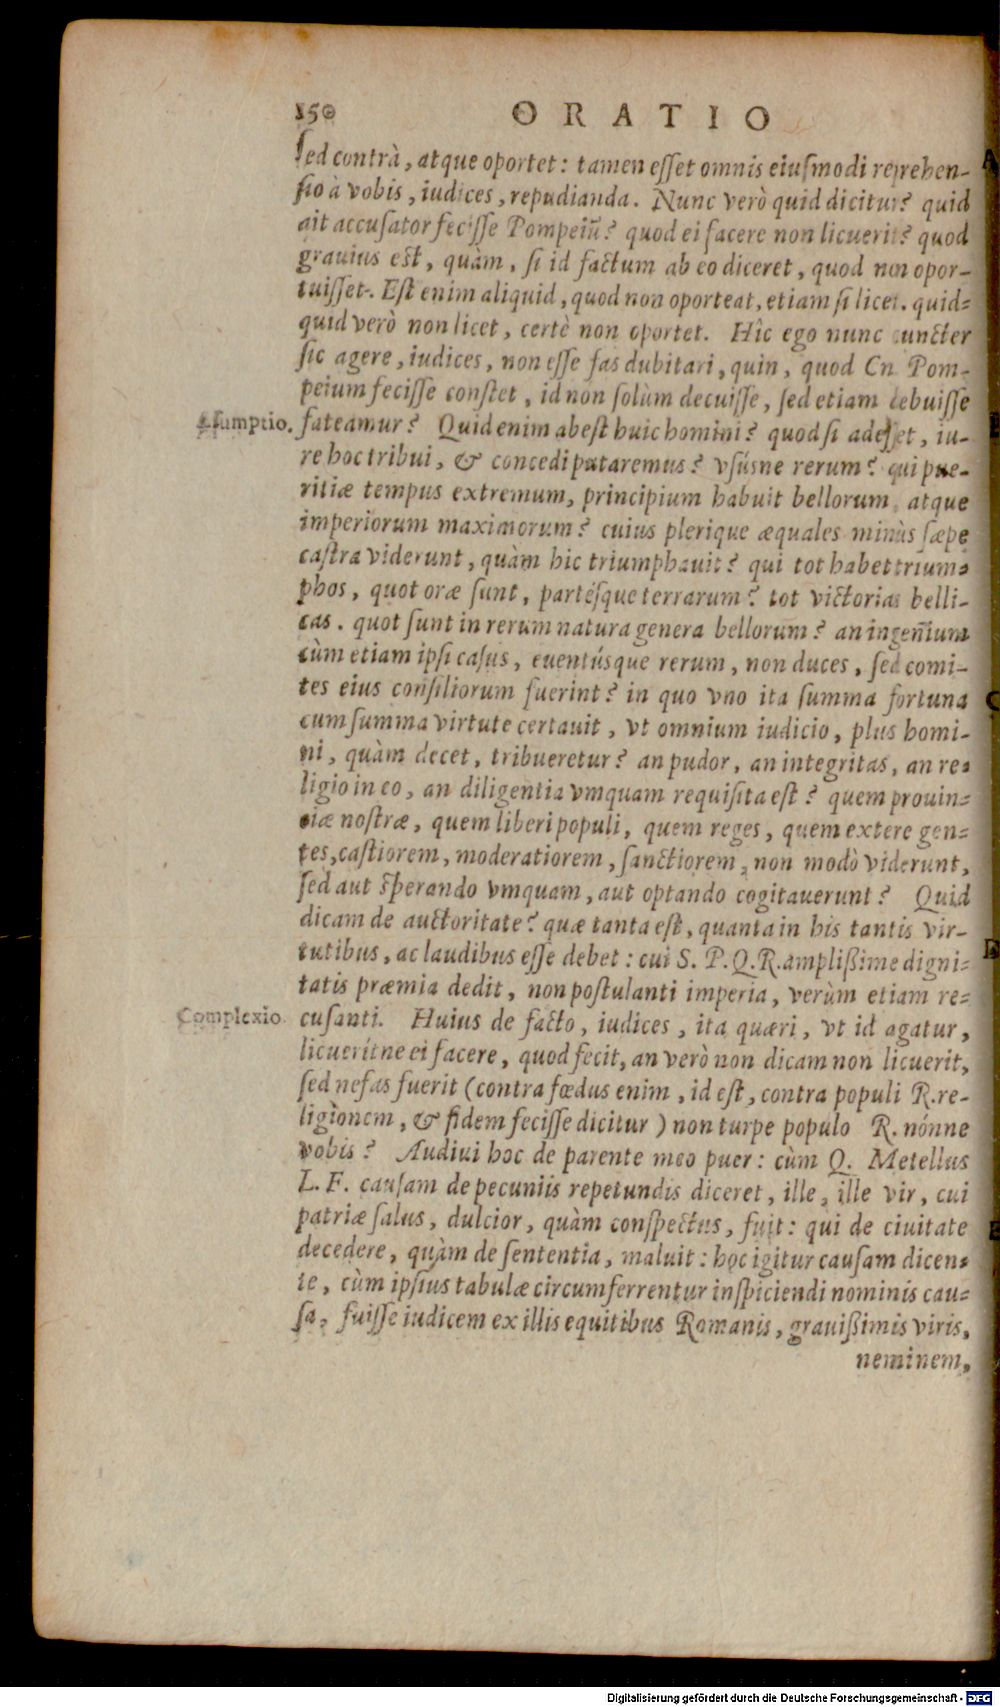 150 ORATIO
ſed contrà, atque oportet: tamen eſſet omnis eiuſmodi reprehen-
ſio à vobis, iudices, repudianda. Nunc verò quid dicitur? quid
ait accuſator feciſſe Pompeiū? quod ei facere non licuerit? quod
grauius eſt, quàm, ſi id factum ab eo diceret, quod non opor-
tuiſſet. Eſt enim aliquid, quod non oporteat, etiam ſi licet. quid-
quid verò non licet, certè non oportet. Hîc ego nunc cuncter
ſic agere, iudices, non eſſe fas dubitari, quin, quod Cn Pom-
peium feciſſe conſtet, id non ſolùm decuiſſe, ſed etiam debuiſſe
Aſſumptio. fateamur? Quid enim abeſt huic homini? quod ſi adeſſet, iu-
re hoc tribui, & concedi putaremus? vſúsne rerum? qui pue-
ritiæ tempus extremum, principium habuit bellorum, atque
imperiorum maximorum? cuius plerique æquales minùs ſæpe
caſtra viderunt, quàm hic triumphauit? qui tot habet trium-
phos, quot oræ ſunt, partésque terrarum? tot victorias belli-
cas. quot ſunt in rerum natura genera bellorum? an ingenium
cùm etiam ipſi caſus, euentúsque rerum, non duces, ſed comi-
tes eius conſiliorum fuerint? in quo vno ita ſumma fortuna
cum ſumma virtute certauit, vt omnium iudicio, plus homi-
ni, quàm decet, tribueretur? an pudor, an integritas, an re-
ligio in eo, an diligentia vmquam requiſita eſt? quem prouin-
ciæ noſtræ, quem liberi populi, quem reges, quem extere gen-
tes, caſtiorem, moderatiorem, ſanctiorem, non modò viderunt,
ſed aut ſperando vmquam, aut optando cogitauerunt? Quid
dicam de auctoritate? quæ tanta eſt, quanta in his tantis vir-
tutibus, ac laudibus eſſe debet: cui S. P. Q. R. ampliſſime digni-
tatis præmia dedit, non poſtulanti imperia, verùm etiam re-
Complexio. cuſanti. Huius de facto, iudices, ita quæri, vt id agatur,
licueritne ei facere, quod fecit, an verò non dicam non licuerit,
ſed nefas fuerit (contra fœdus enim, id eſt, contra populi R. re-
ligionem, & fidem feciſſe dicitur) non turpe populo R. nónne
vobis? Audiui hoc de parente meo puer: cùm Q. Metellus
L. F. cauſam de pecuniis repetundis diceret, ille, ille vir, cui
patriæ ſalus, dulcior, quàm conſpectus, fuit: qui de ciuitate
decedere, quàm de ſententia, maluit: hoc igitur cauſam dicen-
te, cùm ipſius tabulæ circumferrentur inſpiciendi nominis cau-
ſa, fuiſſe iudicem ex illis equitibus Romanis, grauiſſimis viris,
neminem,
Digitalisierung gefördert durch die Deutsche Forschungsgemeinschaft - DFG